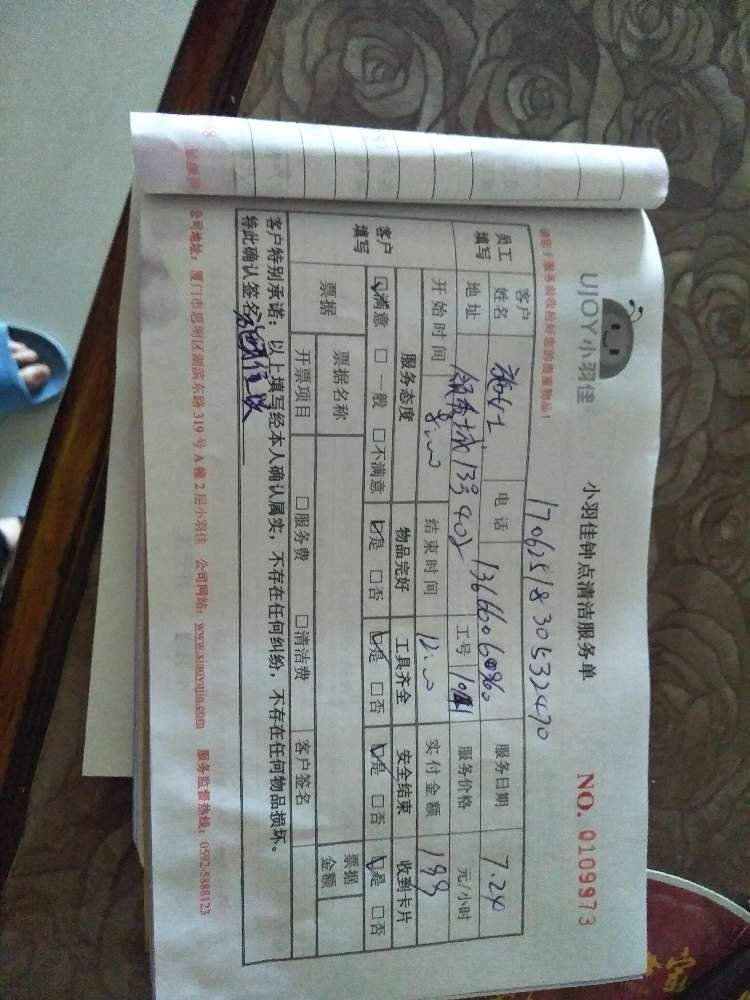 UJOY小羽佳
小羽佳钟点清洁服务单
NO. 0109973
17062518305332470
请您于服务前收拾好您的贵重物品！
员工填写 客户姓名 电话 服务日期 7.24
地址 13号402 工号 服务价格 元/小时
开始时间 8:00 结束时间 12:00 实付金额 199
客户填写 服务态度 物品完好 工具齐全 安全结束 收到卡片
☑满意 □一般 □不满意 ☑是 □否 ☑是 □否 ☑是 □否 ☑是 □否
票据 票据名称 票据金额
开票项目 □服务费 □清洁费 客户签名
客户特别承诺：以上填写经本人确认属实，不存在任何纠纷，不存在任何物品损坏。
特此确认签名
公司地址：厦门市思明区湖滨东路319号A幢2层小羽佳 公司网站：www.xiaoyujia.com 服务监督热线：0592-5888123